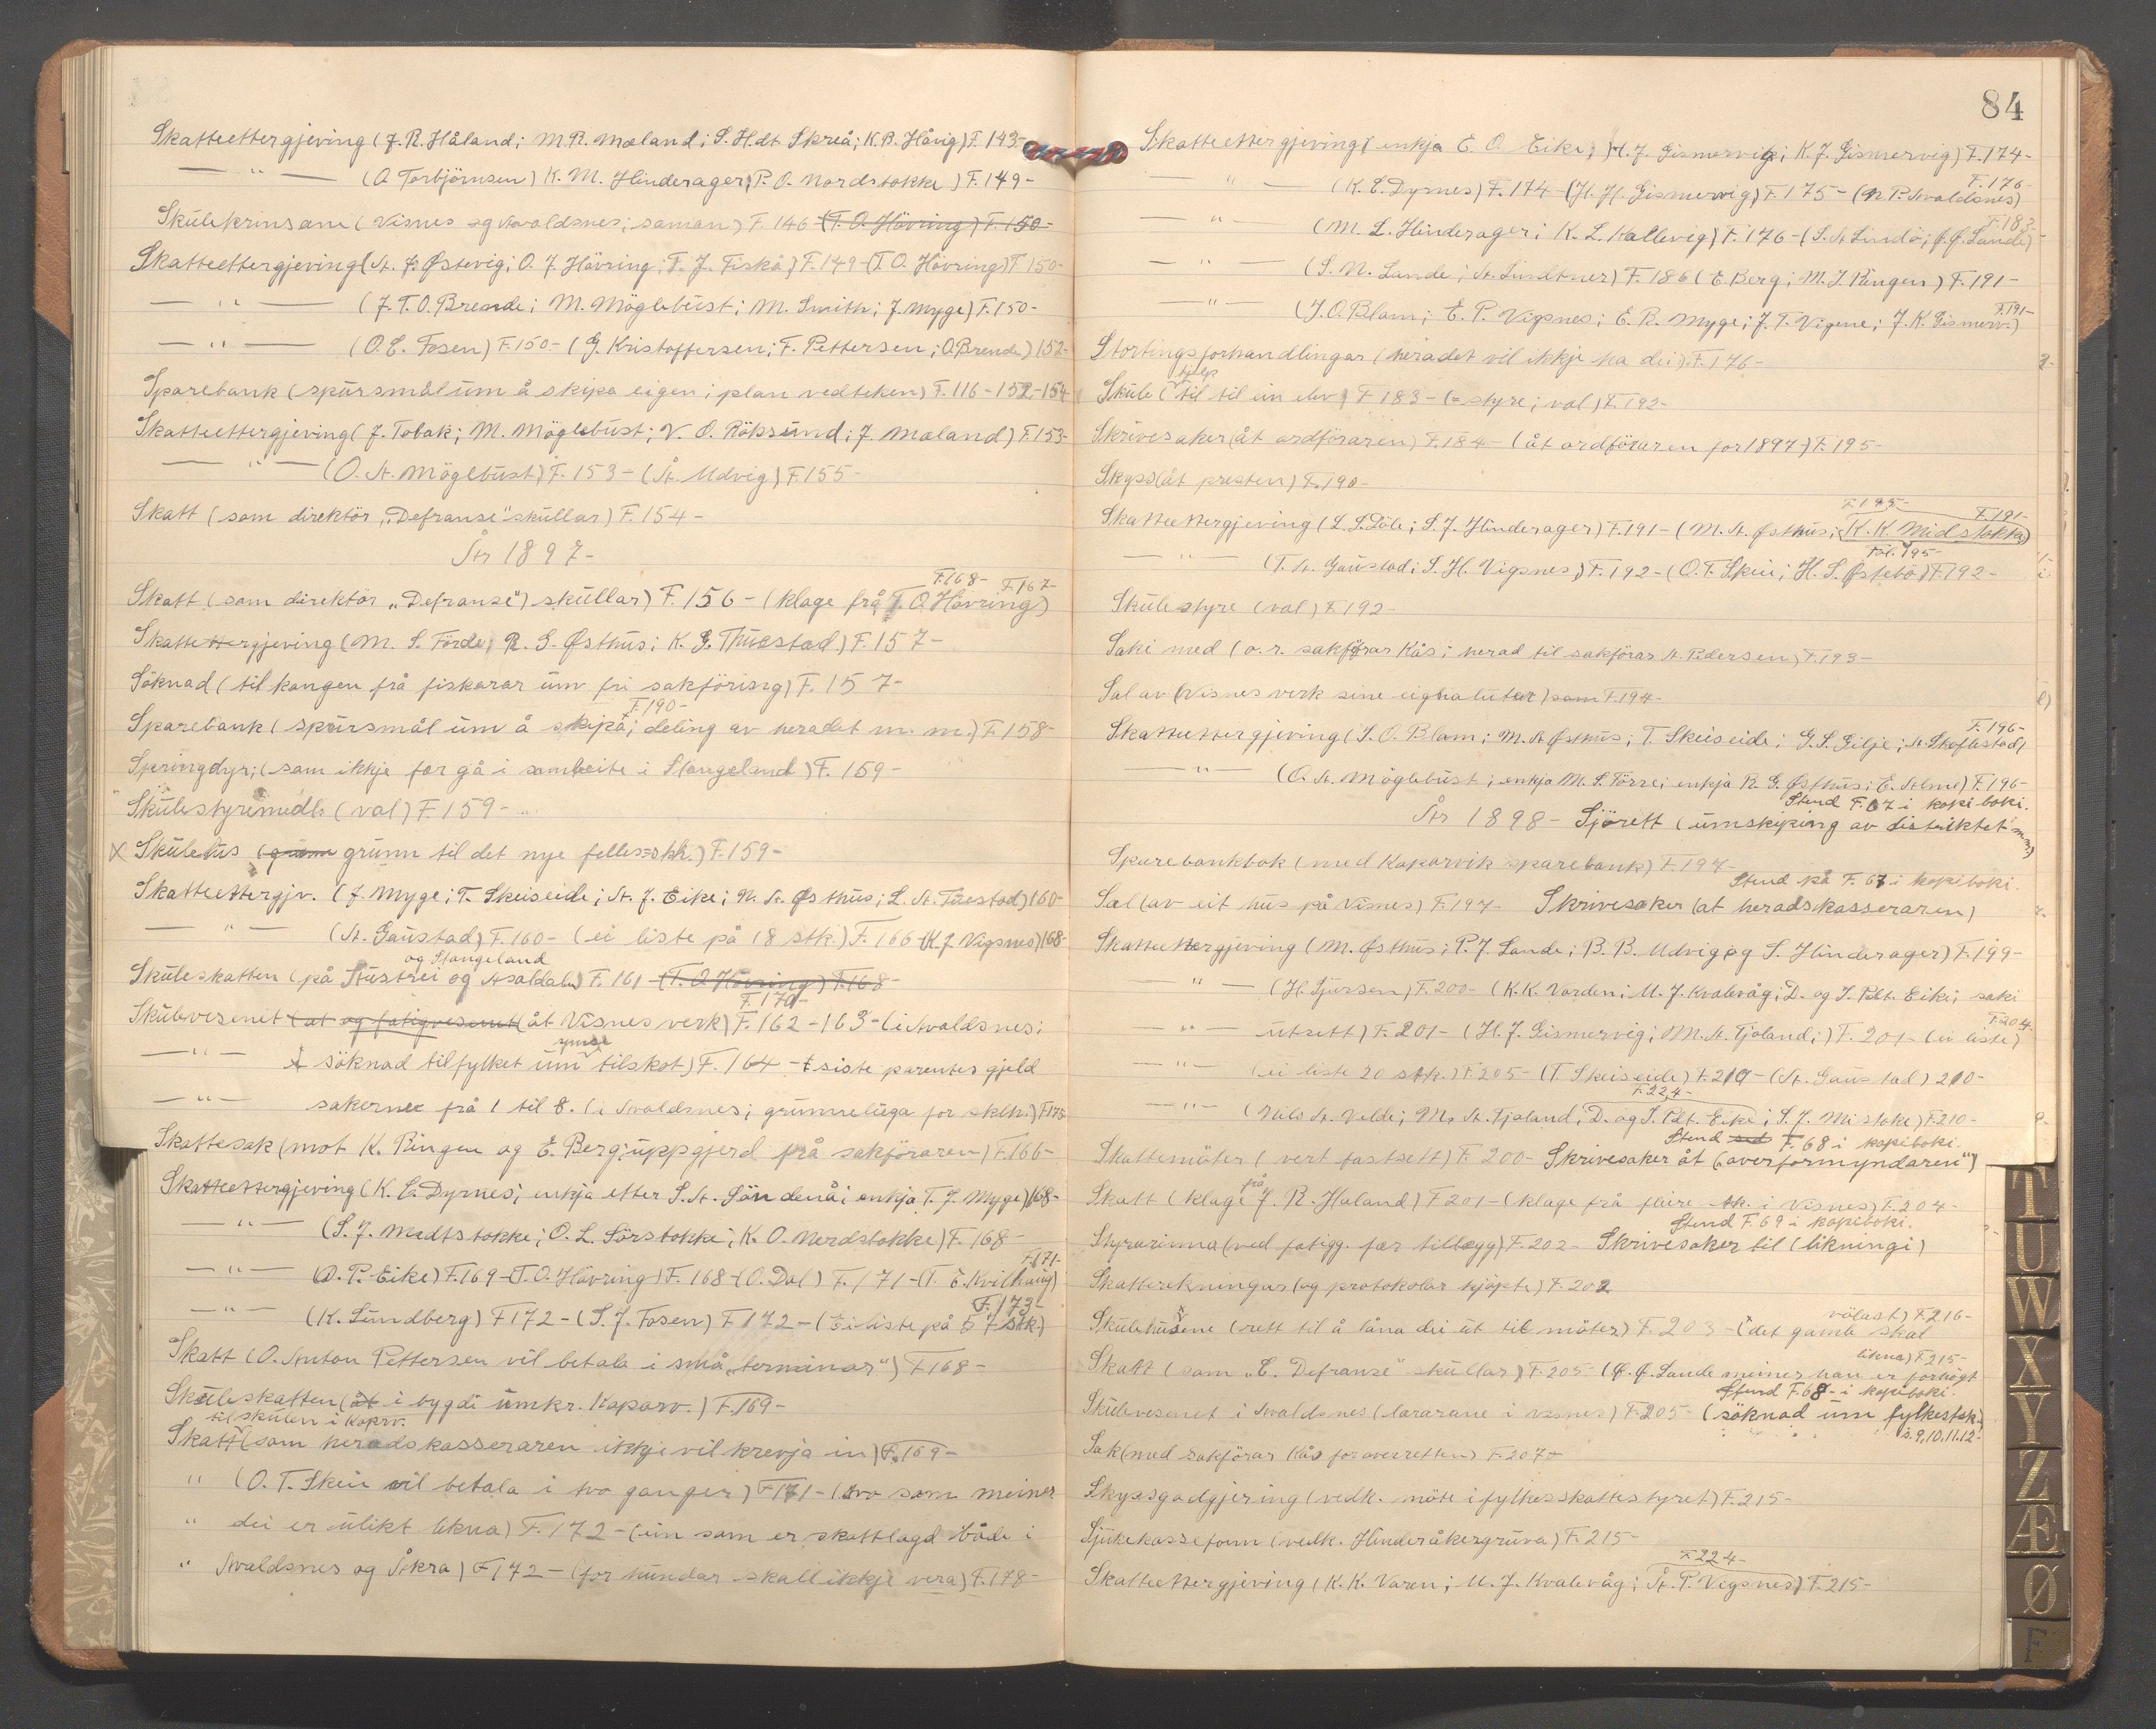 Skatteettergjeving (J. R. Håland; M. R. Mæland; S. H.dt. Skreå; K. B. Håvig) F. 143-
— " — (O. Torbjörnsen) K. M. Hinderager; P. O. Nordstokke) F. 149-
Skülekrinsane (Visnes og Avaldsnes; saman) F. 146 - (T. O. Hövring) F. 150-
Skatteettergjeving (A. J. Östevig; O. J. Hövring; T. J. Fiskå) F. 149 - (T. O. Hövring) F 150-
— " — (J. T. O. Brende; M. Möglebüst; M. Smith; J. Myge) F. 150-
— " — (O. E. Fosen) F. 150- (G. Kristoffersen; F. Pettersen; O. Brende) 152-
Sparebank (spürsmål üm å skipa eigen; plan vedteken) F. 116 - 152 - 154
Skatteettergjeving (J. Tobak; M. Möglebüst; V. O. Röksünd; J. Mæland) F. 153-
— " — (O. A. Möglebüst) F. 153 - (A. Udvig) F. 155-
Skatt (som direktör „Defranse" sküllar) F. 154-
År 1897-
F. 168- F. 167-
Skatt (som direktör „Defranse") sküllar) F. 156 - (klage frå T. O. Hövring)
Skatteettergjeving (M. S. Förde; R. G. Østhüs; K. G. Thuestad.) F. 157-
Söknad (til kongen frå fiskarar üm fri sakföring) F. 157-
F. 190-
Sparebank (spürsmål üm å skipa; deling av heradet m. m.) F 158-
Speringdyr; (som ikkje fær gå i sambeite i Stangeland) F. 159-
Skülestyremedl. (val) F. 159-
X Skülehüs (grunn grünn til det nye felles=skh.) F. 159-
Skatteettergjv. (J. Myge; T. Skeiseide; A. J. Eike; N. A. Østhüs; L. A. Tüestad) 160-
— " — (A. Gaüstad) F. 160- (ei liste på 18 stk.) F. 166 (K. J. Vigsnes) 168-
og Stangeland
Skületskatten (på Aüstrei og Asaldalen) F. 161 - (T. O. Hövring) F. 168-
F. 170-
Skülevesenet (at og fatigvesenet (åt Visnes verk) F. 162 - 163 - (i Avaldsnes;
— " — söknad til fylket üm ymse tilskot) F. 164 - siste parentes gjeld
— " — sakerne frå 1 til 8. (i Avaldsnes; grünnelüga for sklh.) F 175
Skattesak (mot K. Ringen og E. Berg; üppgjerd frå sakföraren) F. 166-
Skatteettergjeving (K. E. Dyrnes; enkja etter S. A. Söndenå; enkja T. J. Myge) 168-
— " — (S. J. Medtstokke; O. L. Sörstokke; K. O. Nordstokke) F. 168-
F. 171-
— " — (O. P. Eike) F. 169 - (T. O. Hövring) F. 168 - (O. Dal) F. 171 - (T. E. Kvilhaüg)
F. 173-
— " — (K. Sündberg) F 172 - (S. J. Fosen) F 172 - (Ei liste på 57 stk.)
Skatt (O. Anton Pettersen vil betala i små „terminar") F 168-
Skületskatten (åt i bygdi ümkr. Koparv.) F. 169-
til skülen i Koprv.
Skatt (som heradskasseraren ikkje vil krevja in) F. 169-
" (O. T. Skeie vil betala i tvo gonger) F 171 - (tvo som meiner
" dei er ülikt likna) F. 172 - (ein som er skattlagd både i
" Avaldsnes og Åkra) F 172 - (for hündar skall ikkje vera) F. 178-
84
Skatteettergjeving (enkja E. O. Eike; H. J. Gismervig; K. J. Gismervig) F. 174-
F. 176-
— " — (K. E. Dyrnes) F. 174 - (H. H. Gismervig) F. 175 - (N. P. Avaldsnes)
F. 183-
— " — (M. L. Hinderager; K. L. Kallevig) F. 176 - (S. A. Lindö; J. J. Lande)
— " — (S. N. Lande; A. Lindtner) F. 186 (E. Berg; M. J. Ringen) F. 191-
F. 191-
— " — (J. O. Blom; E. P. Vigsnes; E. R. Myge; J. T. Vigene; J. K. Gismerv.)
Stortingsforhandlingar (heradet vil ikkje ha dei) F. 176-
hjelp
Sküle (til til ein elev) F 183 - (= styre; val) F. 192-
Skrivesaker (åt ordföraren) F. 184 - (åt ordföraren for 1897) F. 195-
Skyss (åt presten) F. 190-
F. 195- F. 191-
Skatteettergjeving (L. S. Döle; S. J. Hinderager) F. 191 - (M. A. Østhüs; K. K. Midstokke)
Föl. 195-
— " — (T. A. Gaüstad; S. H. Vigsnes) F. 192 - (O. T. Skeie; H. S. Østebö) F. 192-
Skülestyre (val) F. 192-
Saki med (o. r. sakförar Kås; herad til sakförar A. Pedersen) F. 193-
Sal av (Visnes verk sine eignalutar) som F. 194-
F. 196-
Skatteettergjeving (J. O. Blom; M. A. Østhüs; T. Skeiseide; G. S. Gilje; A. Skeijestad)
— " — (O. A. Möglebüst; enkja M. S. Förre; enkja R. G. Østhüs; E. Alme) F. 196-
Stend F. 67 i kopiboki.
År 1898- Sjörett (ümskiping av distriktet m.m)
Sparebankbok (med Koparvik sparebank) F. 197-
Stend på F. 67 i kopiboki.
Sal (av eit hüs på Visnes) F. 197- Skrivesaker (åt heradskasseraren)
Skatteettergjeving (M. Østhüs; P. J. Lande; B. B. Udvig og S. Hinderager) F. 199-
— " — (H. Sjursen) F. 200- (K. K. Varden; M. J. Kvalevåg; D. og J. Pdt. Eike; saki
F. 204.
— " — ütsett) F. 201 - (H. J. Gismervig; M. A. Tjoland;) F. 201 - (ei liste)
— " — (ei liste 20 stk.) F. 205 - (T. Skeiseide) F. 210 - (A. Gaüstad) 210-
F. 224-
— " — (Nils A. Velde; M. A. Tjoland; D. og J. Pdt. Eike; S. J. Mistoke) F. 210-
Stend F. 68 i kopiboki.
Skattemöter (vert fastsett) F. 200- Skrivesaker åt („overformyndaren")
Skatt (klage frå J. R. Håland) F 201 - (klage frå fleire stk. i Visnes) F. 204-
Stend F. 69 i kopiboki.
Styrarinna (ved fatigg. fær tillegg) F. 202- Skrivesaker til (likningi)
Skatterekningar (og protokolar kjöpte) F. 202
völast) F. 216-
Skülehüsene (rett til å låna dei üt til möter) F. 203 - (det gamle skal
likna) F. 215-
Skatt (som „E. Defranse" sküllar) F. 205 - (J. J. Lande meiner han er forhögt
Stend F. 68 - i kopiboki.
Skülevesenet i Avaldsnes (lærarane i Visnes) F. 205 - (söknad üm fylkestsk.)
s. 9, 10. 11. 12-
Sak (med sakförar Kås for overretten) F. 207-
Skyssgodgjering (vedk. möte i fylkesskattestyret) F. 215-
Sjükekasseform (vedk. Hinderåkergrüva) F. 215-
F. 224-
Skatteettergjeving (K. K. Varen; M. J. Kvalevåg; A. P. Vigsnes) F. 215-
T
U
W
X
Y
Z
Æ
Ø
F